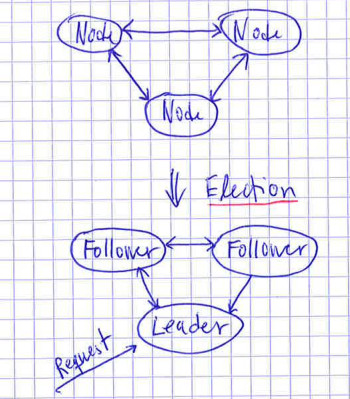 Node Node
Node
Election
Follower Follower
Leader
Request